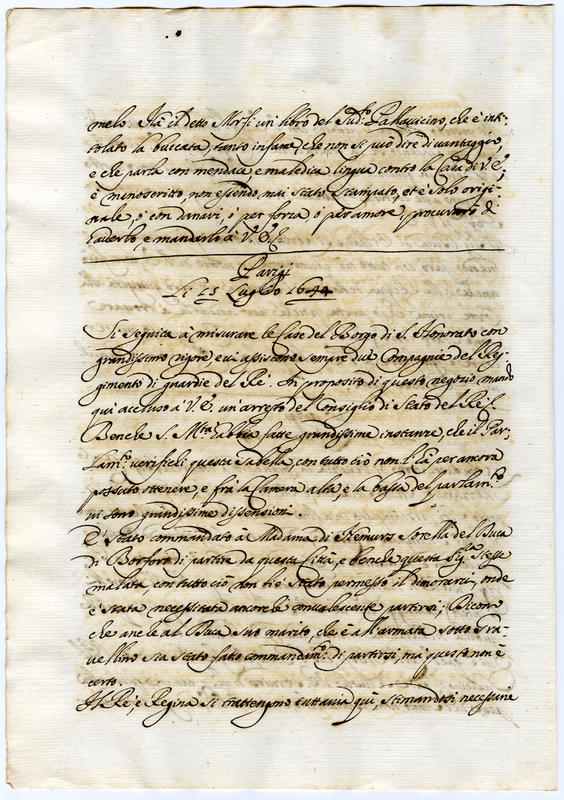 melo. Hà il detto Morsi un libro del Sud.º Pallavicino, che è inti-
tolato la buccata, tanto infame, che non si può dire di vantaggio,
e che parla con mendace, e maledica lingua contro la Casa di V. E.,
è manoscritto, non essendo mai stato stampato, et è solo origi-
nale, ò con danari, ò per forza ò per amore, procurarò di
haverlo, e mandarlo à V. E.
Parigi
Li 15 Luglio 1644
Si seguita à misurare le Case del Borgo di S. Honorato con
grandissimo rigore, e vi assistono sempre due Compagnie del Reg-
gimento di guardie del Rè. In proposito di questo negozio mando
qui accluso à V. E. un'arresto del Consiglio di Stato del Rè.
Benche S. M.tà habbia fatte grandissime instanze, che il Par-
lam.to verifichi questa Gabella, con tutto ciò non l'hà per ancora
possuto ottenere, e fra la Camera alta, e la bassa del parlam.to
vi sono grandissime dissensioni.
E' stato commandato à Madama di Nemurs sorella del Duca
di Borfort di partire da questa Città, e benche questa Sig.ra stesse
malata, con tutto ciò non li è stato permesso il dimorarvi, onde
è stata necessitata ancorche convalescente partirsi; Dicono
che anche al Duca suo marito, che è all'armata sotto Gra-
vellino sia stato fatto commandam.to di partirsi, mà questo non è
certo.
Il Rè, e Regina si trattengono tuttavia quì, stimandosi necessaria